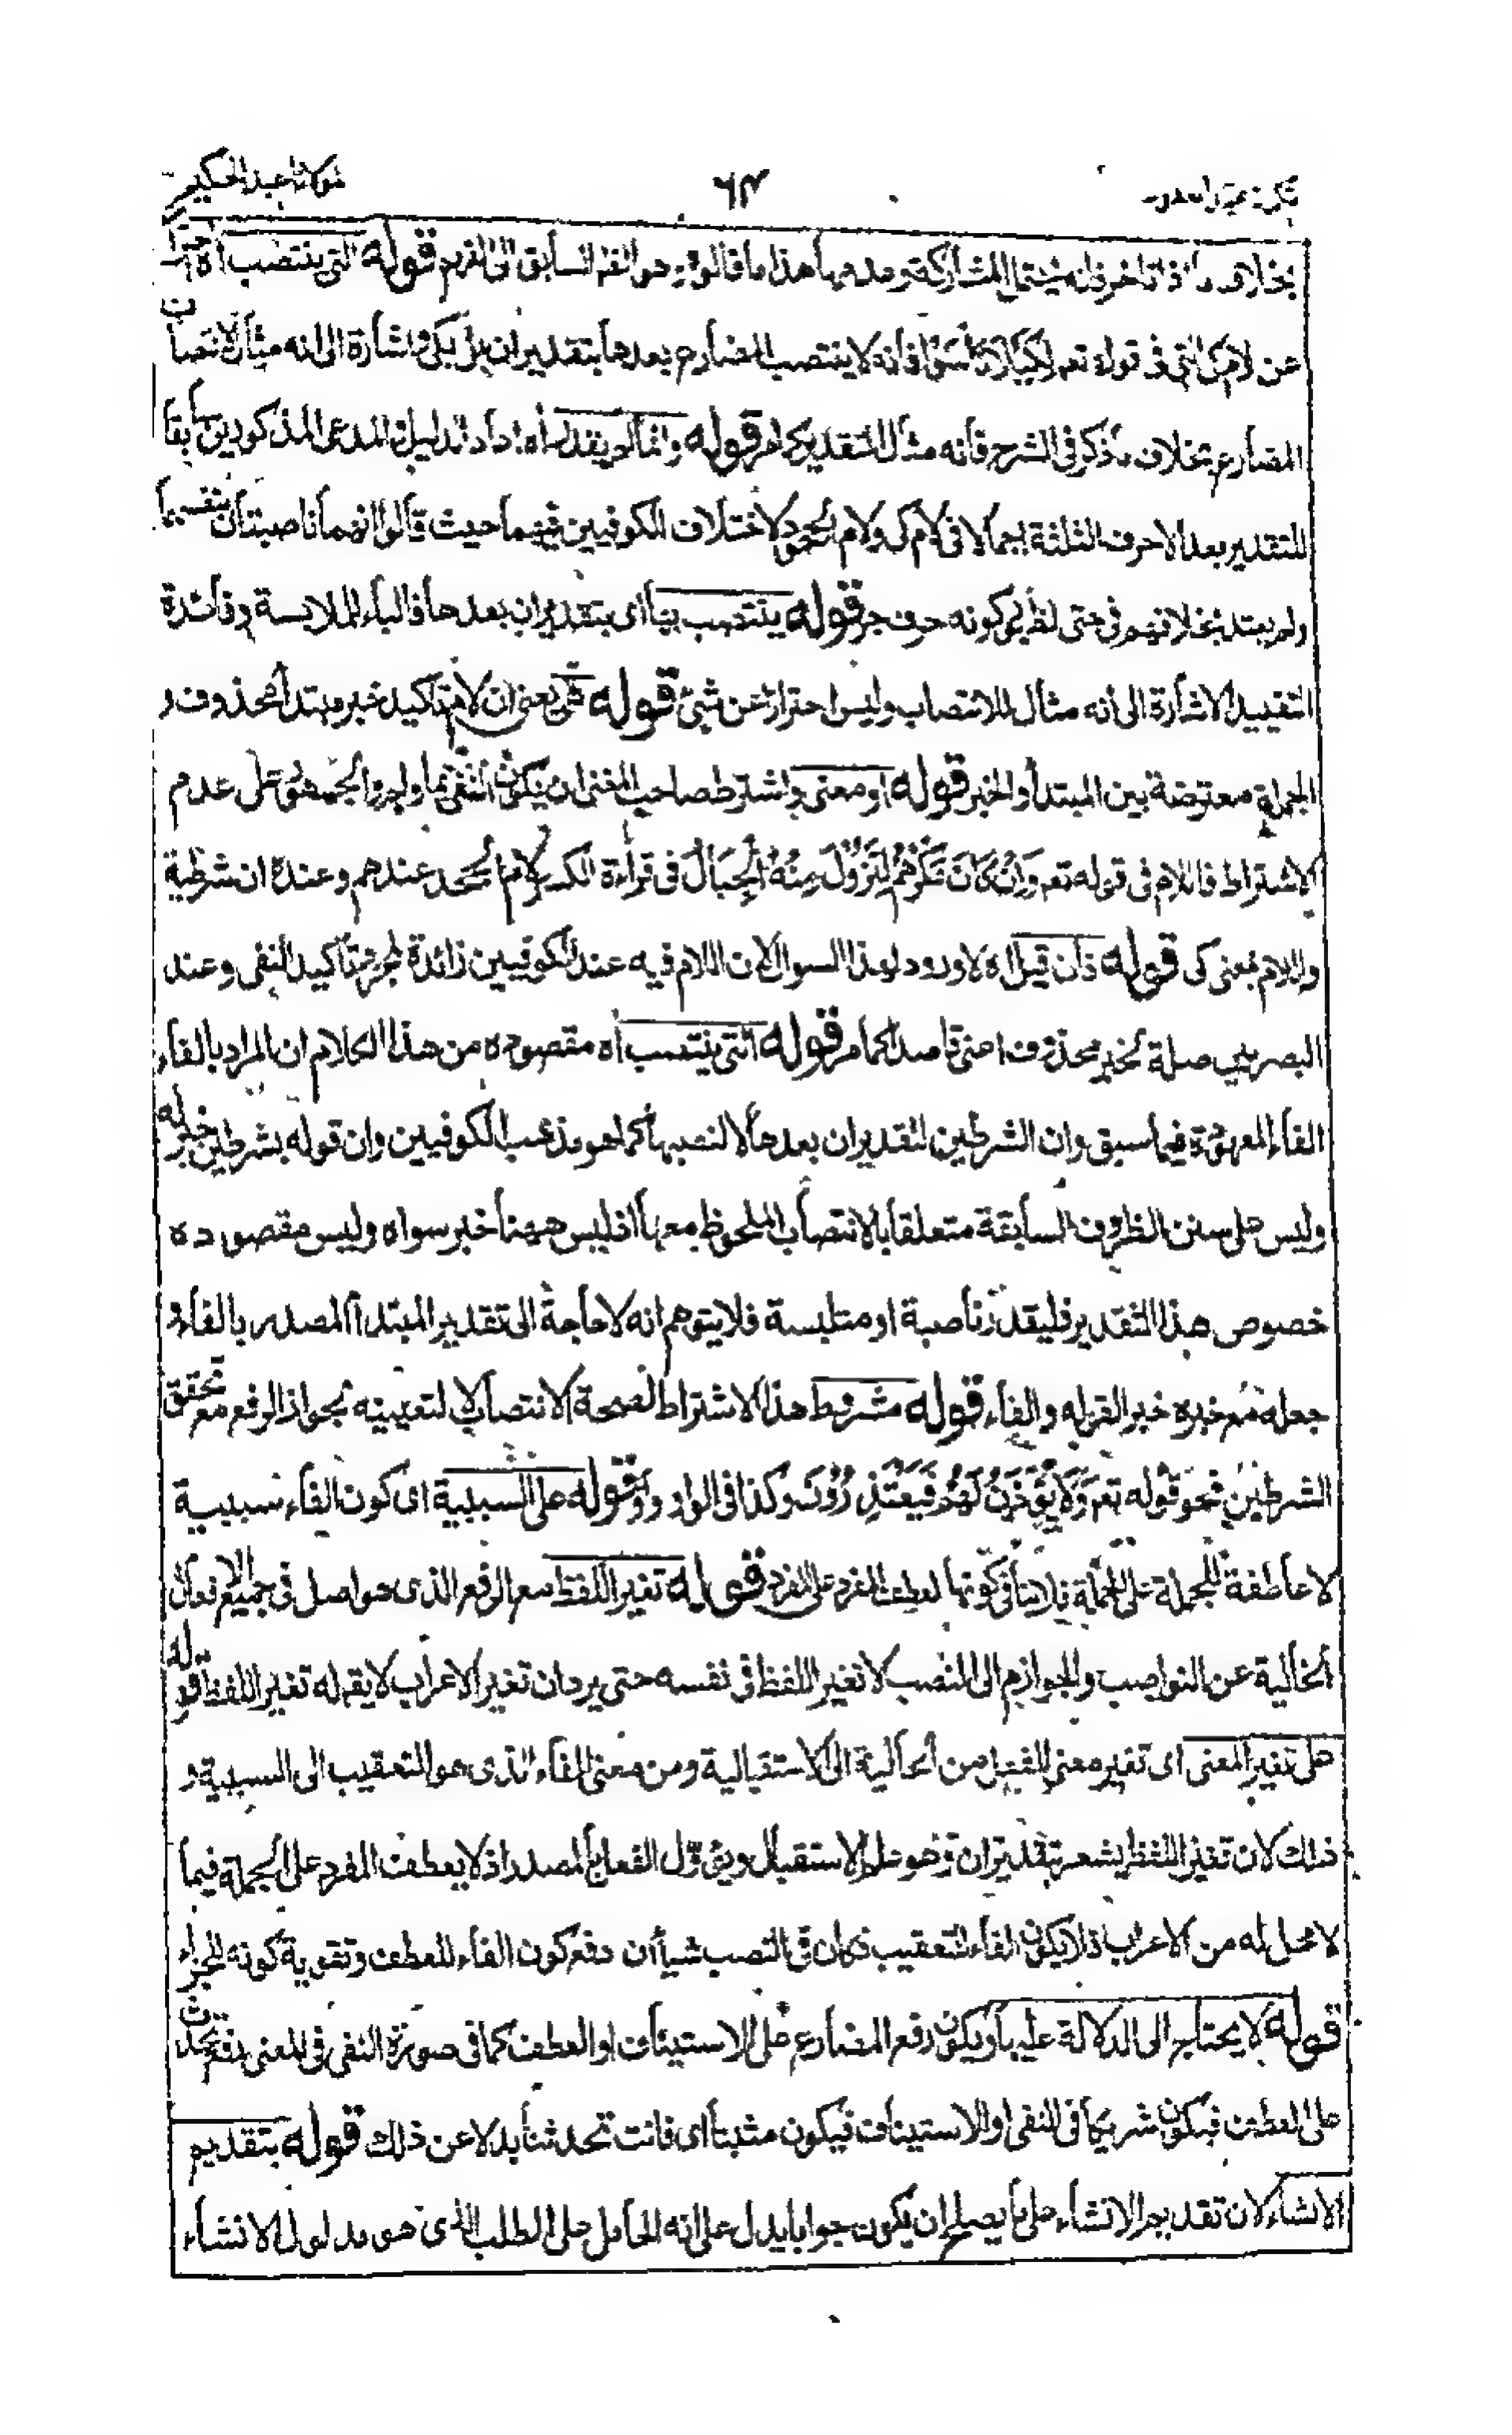 مولانا عبدالحكيم
٦٤
بخلاف ما اذا تأخر فانه يحتمل المشاركة وعدمها هذا ما قالوا هو الفهم السابق الى الفهم قوله التى ينتصب اه احتراز
عن لام كى التى فى قوله تعم لِكَيْلَا تَأْسَوْا فانه لا ينتصب المضارع بعدها بتقدير ان بل بكى واشارة الى انه مثال لانتصاب
المضارع بخلاف ما ذكر فى الشرح فانه مثال للتقدير كما مر قوله وانما لم يقدر اه اداد الدليل المدعى المذكورين سابقا
للتقدير بعد الاحرف الثلثة اجمالا فى لام كى ولام الجحود لاختلاف الكوفيين فيهما حيث قالوا انهما ناصبتان بنفسهما
ولم يعتد بخلافهم فى حتى لظهور كونه حرف جر قوله ينتصب بها اى بتقدير ان بعدها فالباء للملابسة وفائدة
التقييد الاشارة الى انه مثال للانتصاب وليس احترازا عن شئ قوله هى يعنى ان لام تاكيد خبر مبتدأ محذوف و
الجملة معترضة بين المبتدأ والخبر قوله او معنى واشترط صاحب المغنى ان يكون النفى بما ولم والجمهور على عدم
الاشتراط فاللام فى قوله تعم وَاِنْ كَانَ مَكْرُهُمْ لِتَزُوْلَ مِنْهُ الْجِبَالُ فى قراءة الكسر لام الجحد عندهم وعنده ان شرطية
واللام بمعنى كى قوله فان قيل اه لا ورود لهذا السوال لان اللام فيه عند الكوفيين زائدة لمجرد تاكيد النفى وعند
البصريين صلة لخبر محذوف اعنى قاصدا كما مر قوله التى ينتصب اه مقصوده من هذا الكلام ان المراد بالفاء
الفاء المعهودة فيما سبق وان الشرطين لتقدير ان بعدها لا لنصبها كما هو مذهب الكوفيين وان قوله بشرطين خبر له
وليس على سنن الظروف السابقة متعلقا بالانتصاب الملحوظ معها اذ ليس ههنا خبر سواه وليس مقصوده
خصوص هذا التقدير فليقدر ناصبة او متلبسة فلا يتوهم انه لا حاجة الى تقدير المبتدأ المصدر بالفاء و
جعله مع خبره خبر القوله والفاء قوله مشروط هذا الاشتراط لصحة الانتصاب لا لتعيينه بجواز الرفع مع تحقق
الشرطين نحو قوله تعم وَلَا يُؤْذَنُ لَهُمْ فَيَعْتَذِرُوْنَ وكذا فى الواو قوله على السببية اى كون الفاء سببية
لا عاطفة للجملة على الجملة فلا ينافى كونها لعطف المفرد على المفرد قوله تغير اللفظ من الرفع الذى هو اصل فى جميع الافعال
الخالية عن النواصب والجوازم الى النصب لا تغير اللفظ فى نفسه حتى يرد ان تغير الاعراب لا يقم له تغير اللفظ قوله
على تغير المعنى اى تغير معنى الفعل من الحالية الى الاستقبالية ومن معنى الفاء الذى هو التعقيب الى السببية و
ذلك لان تغير اللفظ يشعر بتقدير ان وهو علم الاستقبال ويؤول الفعل بالمصدر اذ لا يعطف المفرد على الجملة فيما
لا محل له من الاعراب فلا يكون الفاء للتعقيب فكان فى النصب شيأان دفع كون الفاء للعطف وتقوية كونه للجزاء
قوله لا يحتاج الى الدلالة عليها ويكون رفع المضارع على الاستيناف او العطف كما فى صورة النفى فى المعنى فتحدث
على العطف فيكون شريكا فى النفى او الاستيناف فيكون مثبتا اى فانت تحدثنا بدلا عن ذلك قوله بتقديم
الانشاء لان تقديم الانشاء على ما يصلح ان يكون جوابا يدل على انه الحامل على الطلب الذى هو مدلول الانشاء